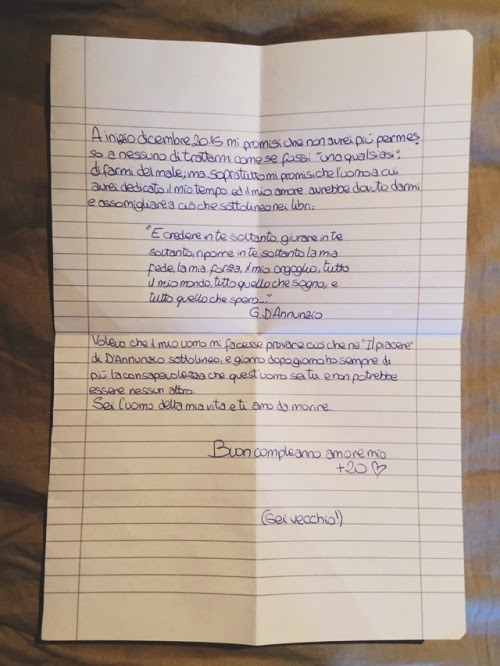 A inizio dicembre 2015 mi promisi che non avrei più permes
so a nessuno di trattarmi come se fossi "una qualsiasi",
di farmi del male; ma soprattutto mi promisi che l'uomo a cui
avrei dedicato il mio tempo ed il mio amore avrebbe dovuto darmi
e assomigliare a ciò che sottolineo nei libri:
"E credere in te soltanto, giurare in te
soltanto, riporre in te soltanto la mia
fede, la mia forza, il mio orgoglio, tutto
il mio mondo, tutto quello che sogno, e
tutto quello che spero..."
G. D'Annunzio
Volevo che il mio uomo mi facesse provare ciò che ne "Il piacere"
di D'Annunzio sottolineo, e giorno dopo giorno ho sempre di
più la consapevolezza che quest'uomo sei tu e non potrebbe
essere nessun altro.
Sei l'uomo della mia vita e ti amo da morire.
Buon compleanno amore mio
+20 ♡
(sei vecchio!)